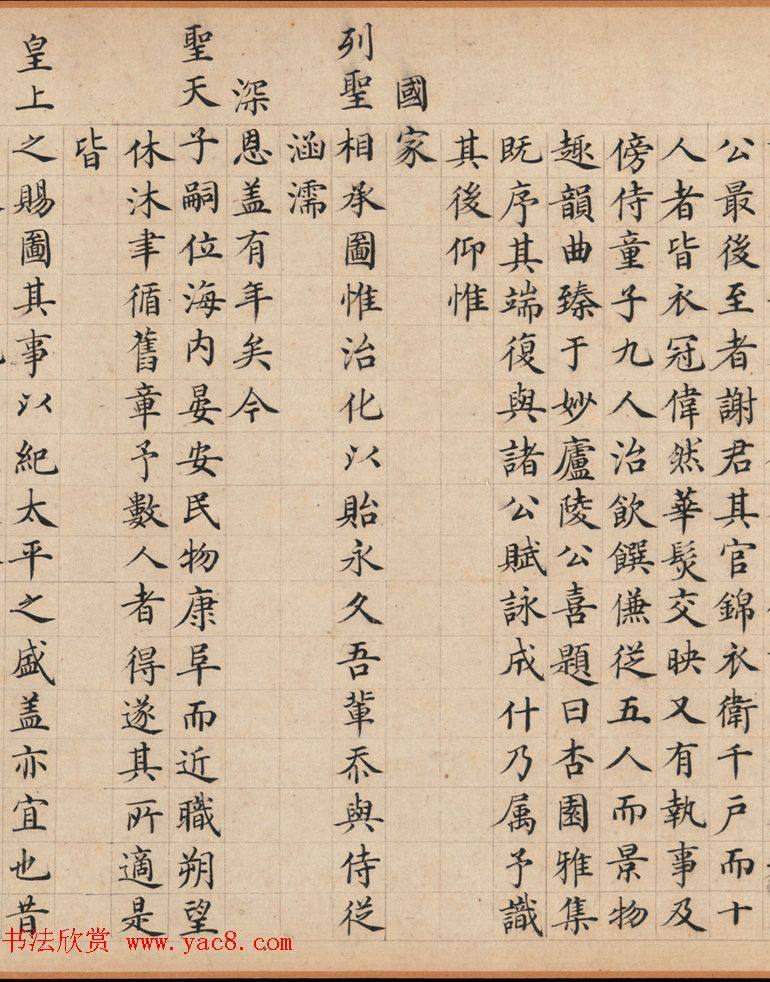 公最後至者謝君其官錦衣衛千戶而十
人者皆衣冠偉然華髮交映又有執事及
傍侍童子九人治飲饌傔從五人而景物
趣韻曲臻于妙廬陵公喜題曰杏園雅集
既序其端復與諸公賦詠成什乃属予識
其後仰惟
國家
列聖相承圖惟治化以貽永久吾軰忝與侍從
涵濡
深恩盖有年矣今
聖天子嗣位海内晏安民物康阜而近職朔望
休沐聿循舊章予數人者得遂其所適是
皆
皇上之賜圖其事以紀太平之盛盖亦宜也昔
书法欣赏 www.yac8.com